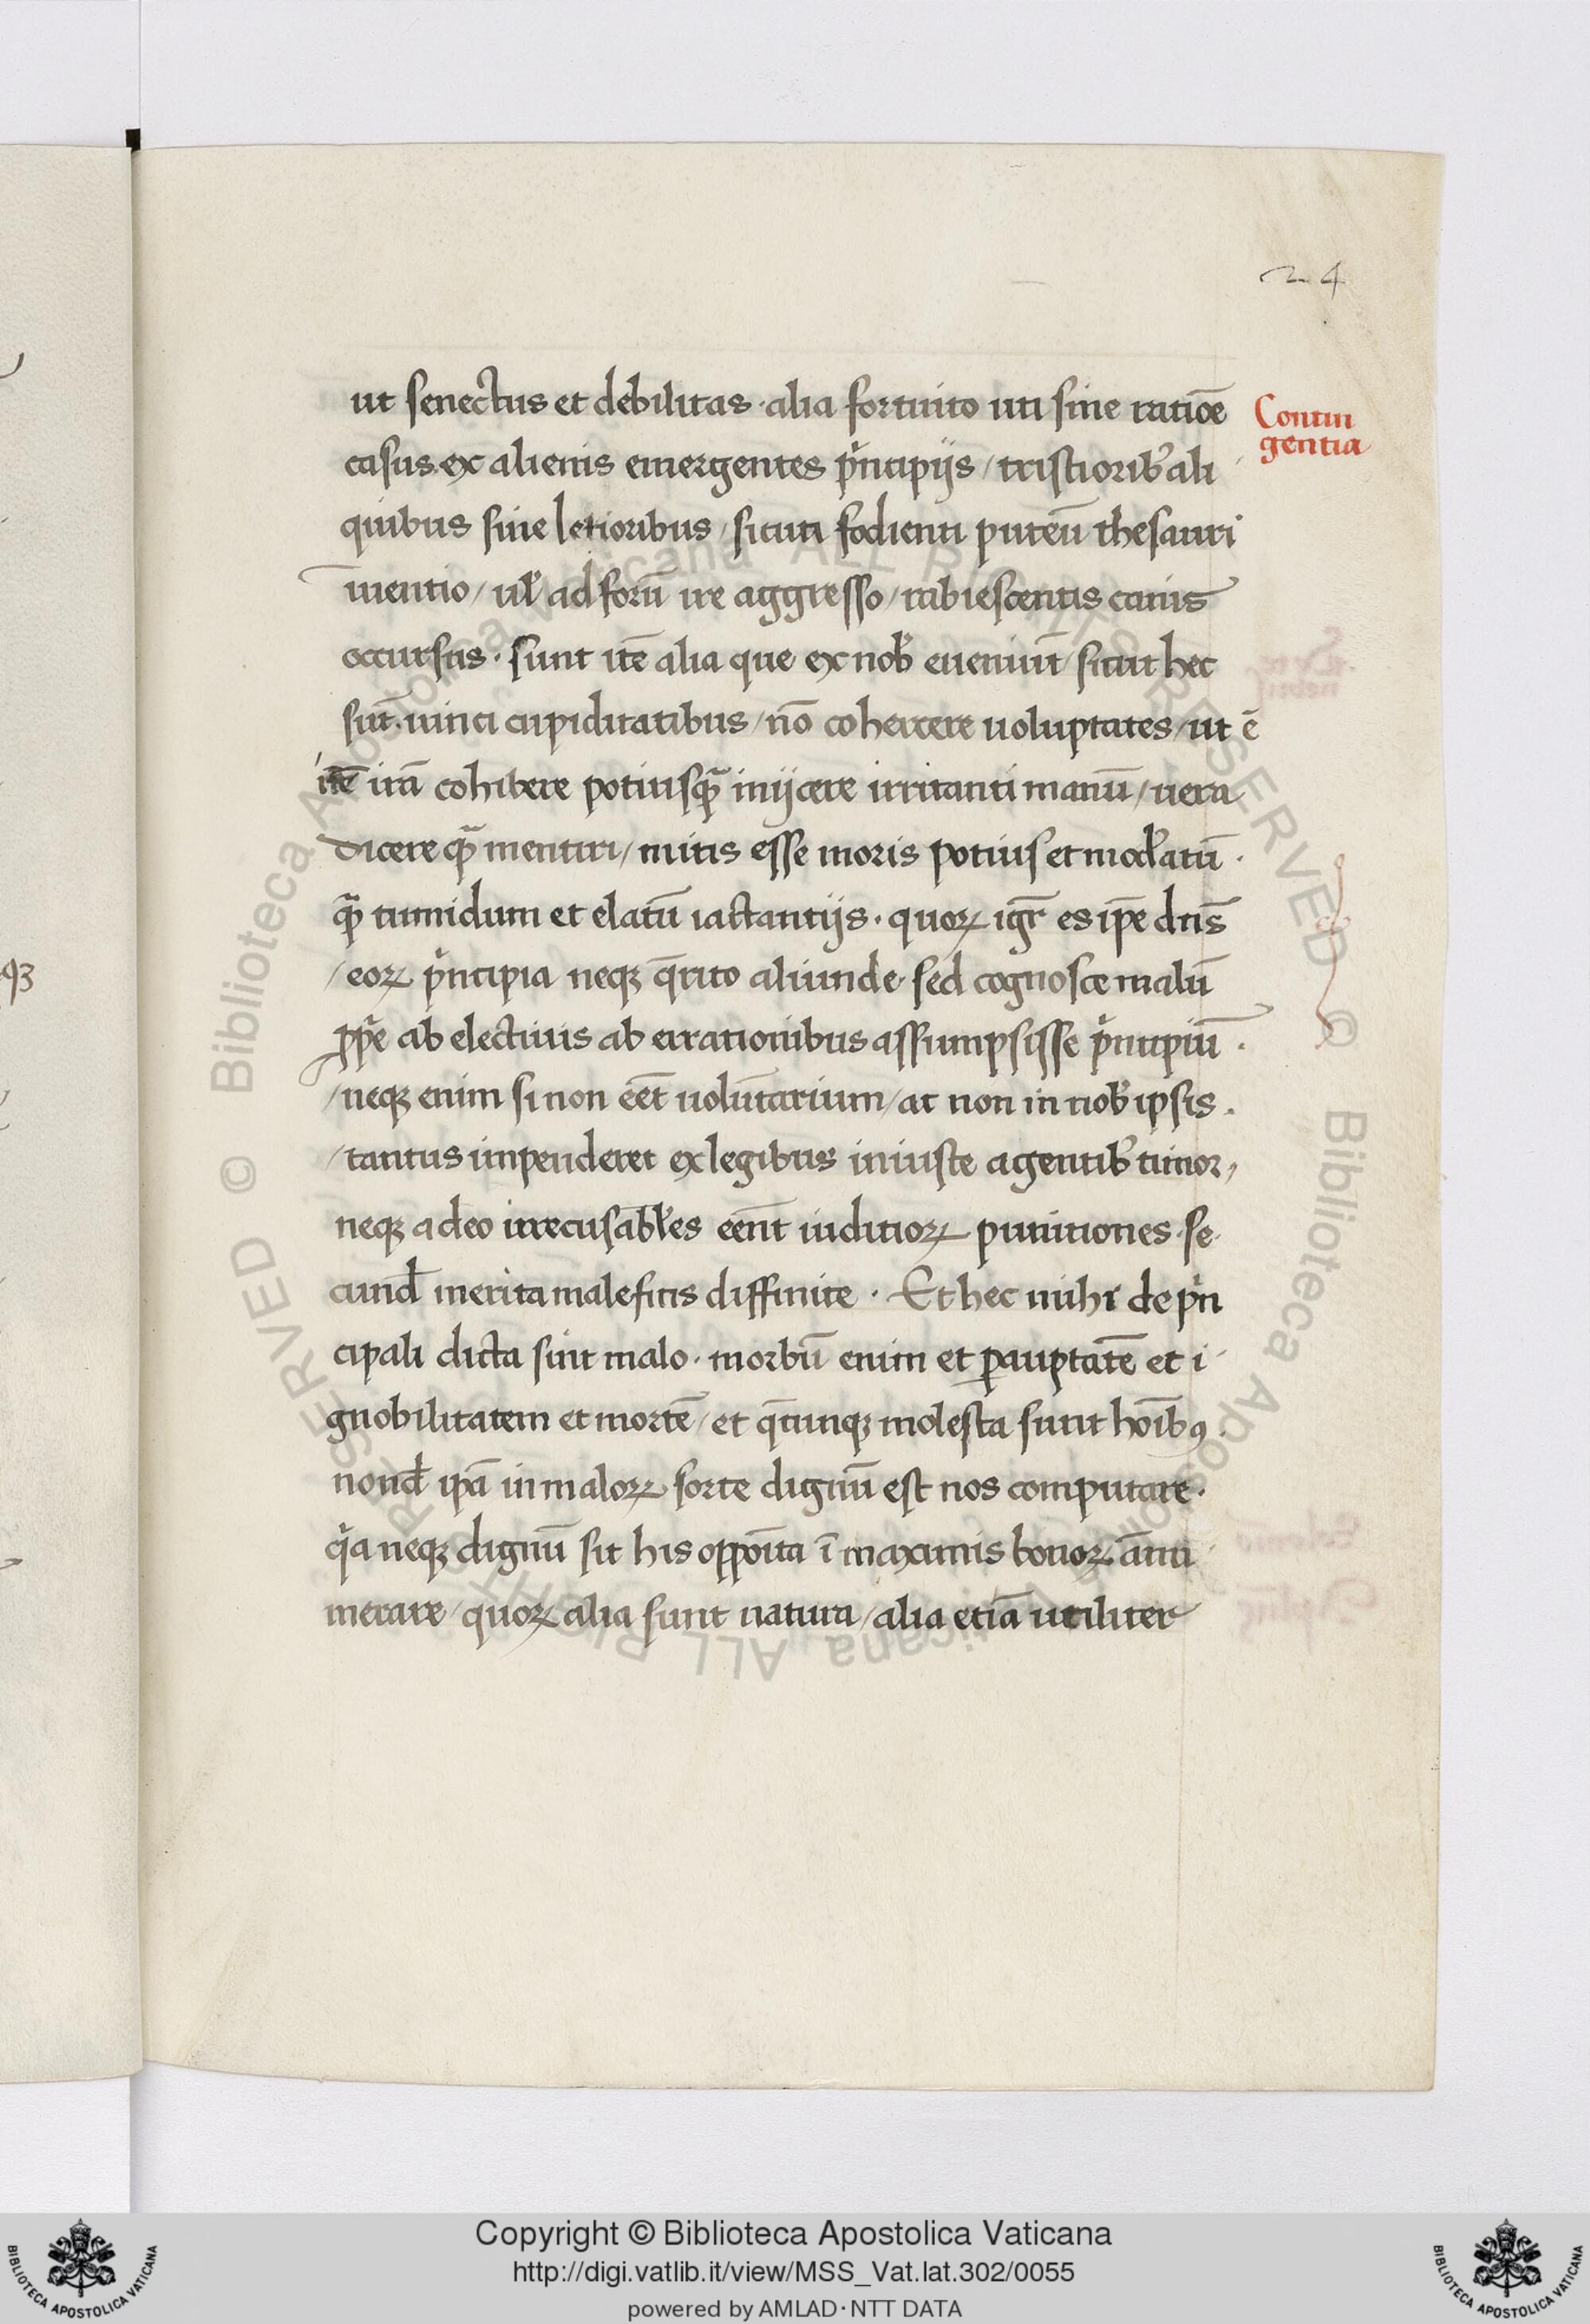 24
ut senectus et debilitas · alia fortuito uti sine ratiōe
Contin
gentia
casus ex alienis emergentes pͥncipijs / tristioribꝰ ali
quibus siue letioribus / sicuti fodienti puteū thesauri
īuentio / ul̕ ad forū ire aggresso / rabiescentis canis
occursus · sunt itē alia que ex nob̕ eueniūt / sicut hec
sūt · uinci cupiditatibus / nō cohercere uoluptates / ut ē
itē irā cohibere potiusꝙ̃ inijcere irritanti manū / uera
dicere ꝙ̃ mentiri / mitis esse moris potius et mod̕atū ·
ꝙ̃ tumidum et elatū iactantijs · quoꝝ igr̄ es ip̄e dn̄s
/ eoꝝ pͥncipia neqꝫ q̄rito aliunde · sed cognosce malū
ꝓpͥe ab electiuis aberrationibus assumpsisse pͥncipiū ·
/ neqꝫ enim si non eēt uolūtarium / ac non in nob̕ ipsis ·
/ tantus impenderet ex legibus iniuste agentibꝰ timor /
neqꝫ adeo irrecusabl̕es eēnt iuditioꝝ punitiones · se
cund̄ merita maleficis diffinite · Et hec mihi de pͥn
cipali dicta sint malo · morbū enim et ꝑauꝑtatē et i
gnobilitatem et mortē / et q̄cunqꝫ molesta sunt hoīбꝰ ·
nond̄ ip̄a in maloꝝ sorte dignū est nos computare ·
qͥa neqꝫ dignū sit his oppoīta ī maximis bonoꝝ ānu
merare / quoꝝ alia sunt natura / alia etiā utiliter
Copyright © Biblioteca Apostolica Vaticana
http://digi.vatlib.it/view/MSS_Vat.lat.302/0055
powered by AMLAD·NTT DATA